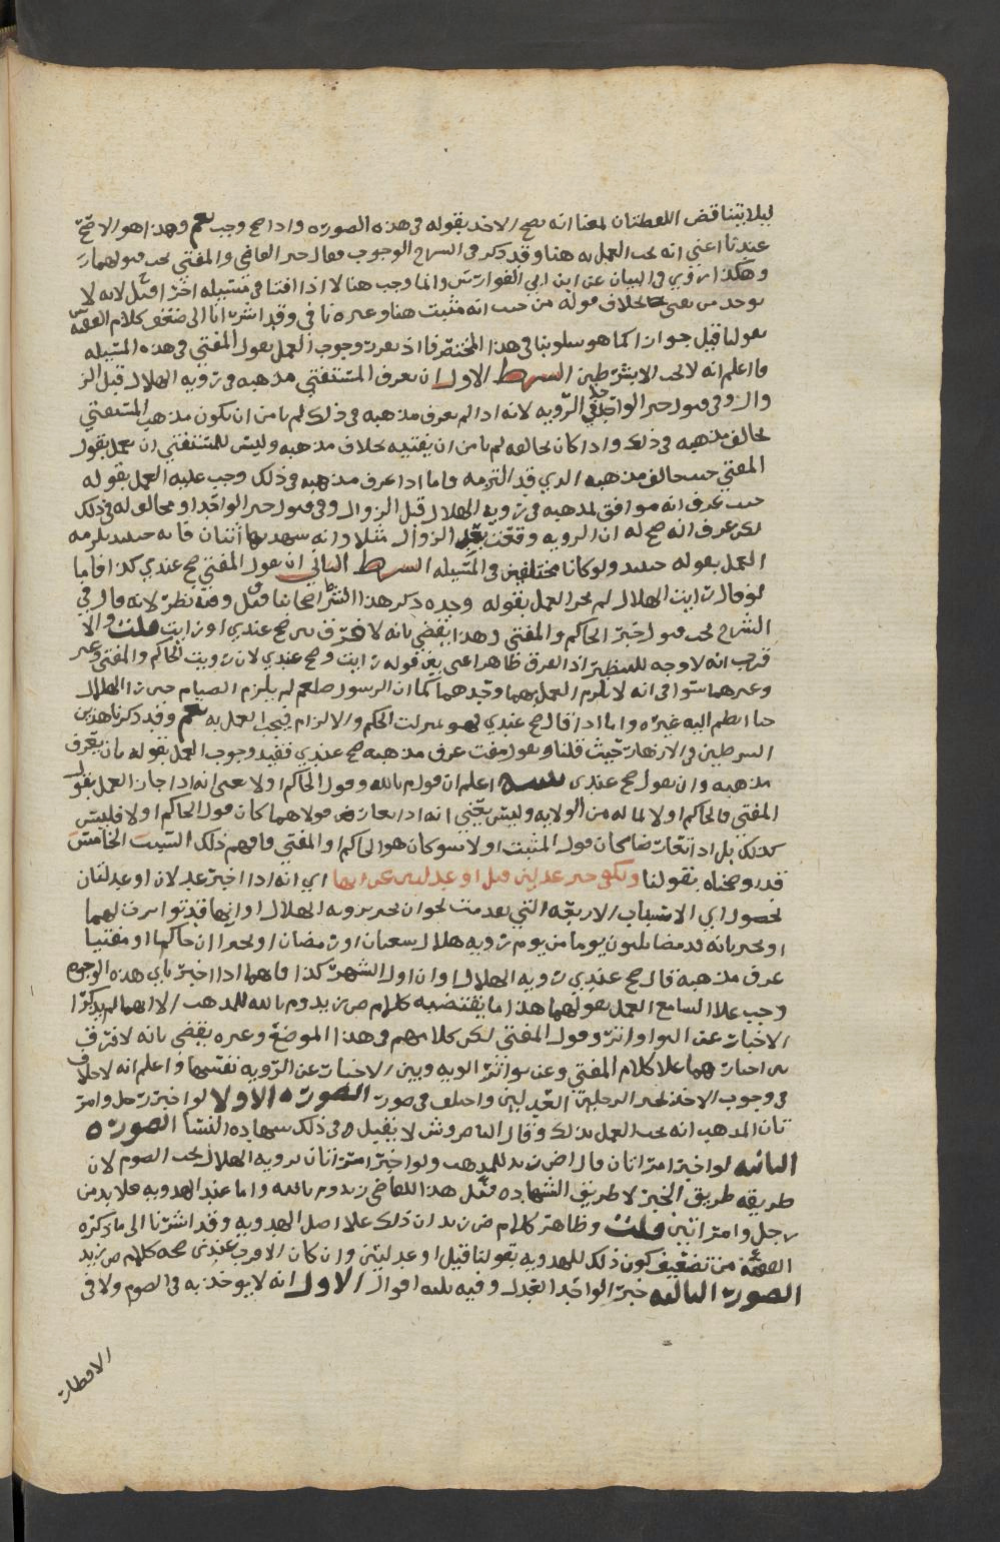 ليلا يتناقض اللفظتان لمعنا انه يصح الاخد بقوله في هذه الصوره واذا صح وجب نعم وهذا هو الاصح
عندنا اعني انه يجب العمل به هنا وقد ذكر في الشرح الوجوب فقال خبر القاضي والمفتي يجب قبولهما
وهكذا روي في البيان عن ابن ابي الفوارس وانما وجب هنا لا اذا افتا في مسئله اخرا قيل لانه لا
يوجد من يفتي بخلاف قوله من حيث انه مثبت هنا وغيره نافي وقد اشرنا الى ضعف كلام الفقيه س
بقولنا قيل جوازا كما هو اسلوبنا في هذا المختصر فاذا تقررت وجوب العمل بقول المفتي في هذه المسئله
فاعلم انه لا يجب الا بشرطين الشرط الاول ان يعرف المستفتي مذهبه في رويه الهلال قبل الز
وال وفي قبول خبر الواحد في الرويه لانه اذا لم يعرف مذهبه في ذلك لم يامن ان يكون مذهب المستفتي
يخالف مذهبه في ذلك واذا كان يخالفه لم يامن ان يفتيه بخلاف مذهبه وليس للمستفتي ان يعمل بقول
المفتي حيث خالف مذهبه الذي قد التزمه فاما اذا عرف مذهبه في ذلك وجب عليه العمل بقوله
حيث عرف انه موافق لمذهبه في رويه الهلال قبل الزوال وفي قبول خبر الواحد او مخالف له في ذلك
لكن عرف انه صح له ان الرويه وقعت بعد الزوال مثلا وانه شهد بها اثنان فانه حينيد يلزمه
العمل بقوله حينيد ولو كانا مختلفين في المسئله الشرط الثاني ان يقول المفتي صح عندي كذا فاما
لو قال رايت الهلال لم يجز العمل بقوله وحده ذكر هذا الشرط اصحابنا قيل وفيه نظر لانه قال في
الشرح يجب قبول خبر الحاكم والمفتي وهذا يقضي بانه لا فرق بين صح عندي او رايت قلت والا
قرب انه لا وجه للتنظير اذ الفرق ظاهر اعني بين قوله رايت وصح عندي لان رويت الحاكم والمفتي وغير
وغيرهما سوا في انه لا يلزم العمل بهما وحدهما كما ان الرسول صلعم لم يلزم الصيام حين را الهلال
حتا انظم اليه غيره واما اذا قال صح عندي فهو بمنزلت الحكم والالزام فيجب العمل به نعم وقد ذكرنا هذين
الشرطين في الازهار حيث قلنا وبقول مفت عرف مذهبه صح عندي فقيد وجوب العمل بقوله بان يعرف
مذهبه وان يقول صح عندي تنبيه اعلم ان قولم بالله وقول الحاكم اولا يعني انه اذا جاز العمل بقول
المفتي فالحاكم اولا لما له من الولايه وليس يعني انه اذا تعارض قولاهما كان قول الحاكم اولا فليس
كذلك بل اذا تعارضا كان قول المثبت اولا سوا كان هو الحاكم او المفتي فافهم ذلك السبب الخامس
قد اوضحناه بقولنا ويكفي خبر عدلين قيل او عدلتين عن ايها اي انه اذا اخبر عدلان او عدلتان
بحصول اي الاسباب الاربعه التي تقدمت نحو ان يخبر برويه الهلال او انها قد تواترت لهما
او يخبر بانه قد مضا ثلثون يوما من يوم رويه هلال شعبان او رمضان او يخبرا ان حاكما او مفتيا
عرف مذهبه قال صح عندي رويه الهلال او ان اول الشهر كذا فانهما اذا اخبرا باي هذه الوجوه
وجب علا السامع العمل بقولهما هذا ما يقتضيه كلام ص ز يد وم بالله للمذهب الا انهما لم يذكرا
الاخبار عن التواتر وقول المفتي لكن كلامهم في هذا الموضع وغيره يقضي بانه لا فرق
بين اخبارهما علا كلام المفتي وعن تواتر الرويه وبين الاخبار عن الرويه نفسها واعلم انه لا خلاف
في وجوب الاخذ بخبر الرجلين العدلين واختلف في صور الصوره الاولا لو اخبر رجل وامر
تان المذهب انه يجب العمل بذلك وقال الناصر وش لا يقبل في ذلك شهاده النسا الصوره
الثانيه لو اخبر امراتان قال ض ز يد للمذهب ولو اخبر امراتان برويه الهلال يجب الصوم لان
طريقه طريق الخبر لا طريق الشهاده قيل هذا للقاضي ز يد وم بالله واما عند الهدويه فلا بد من
رجل وامراتين قلت وظاهر كلام ض ز يد ان ذلك علا اصل الهدويه وقد اشرنا الى ما ذكره
الفقيه من تضعيف كون ذلك للهدويه بقولنا قيل او عدلتين وان كان الاقرب عندي صحه كلام ص ز يد
الصوره الثالثه خبر الواحد العدل وفيه ثلثه اقوال الاول انه لا يوخذ به في الصوم ولا في
الافطار